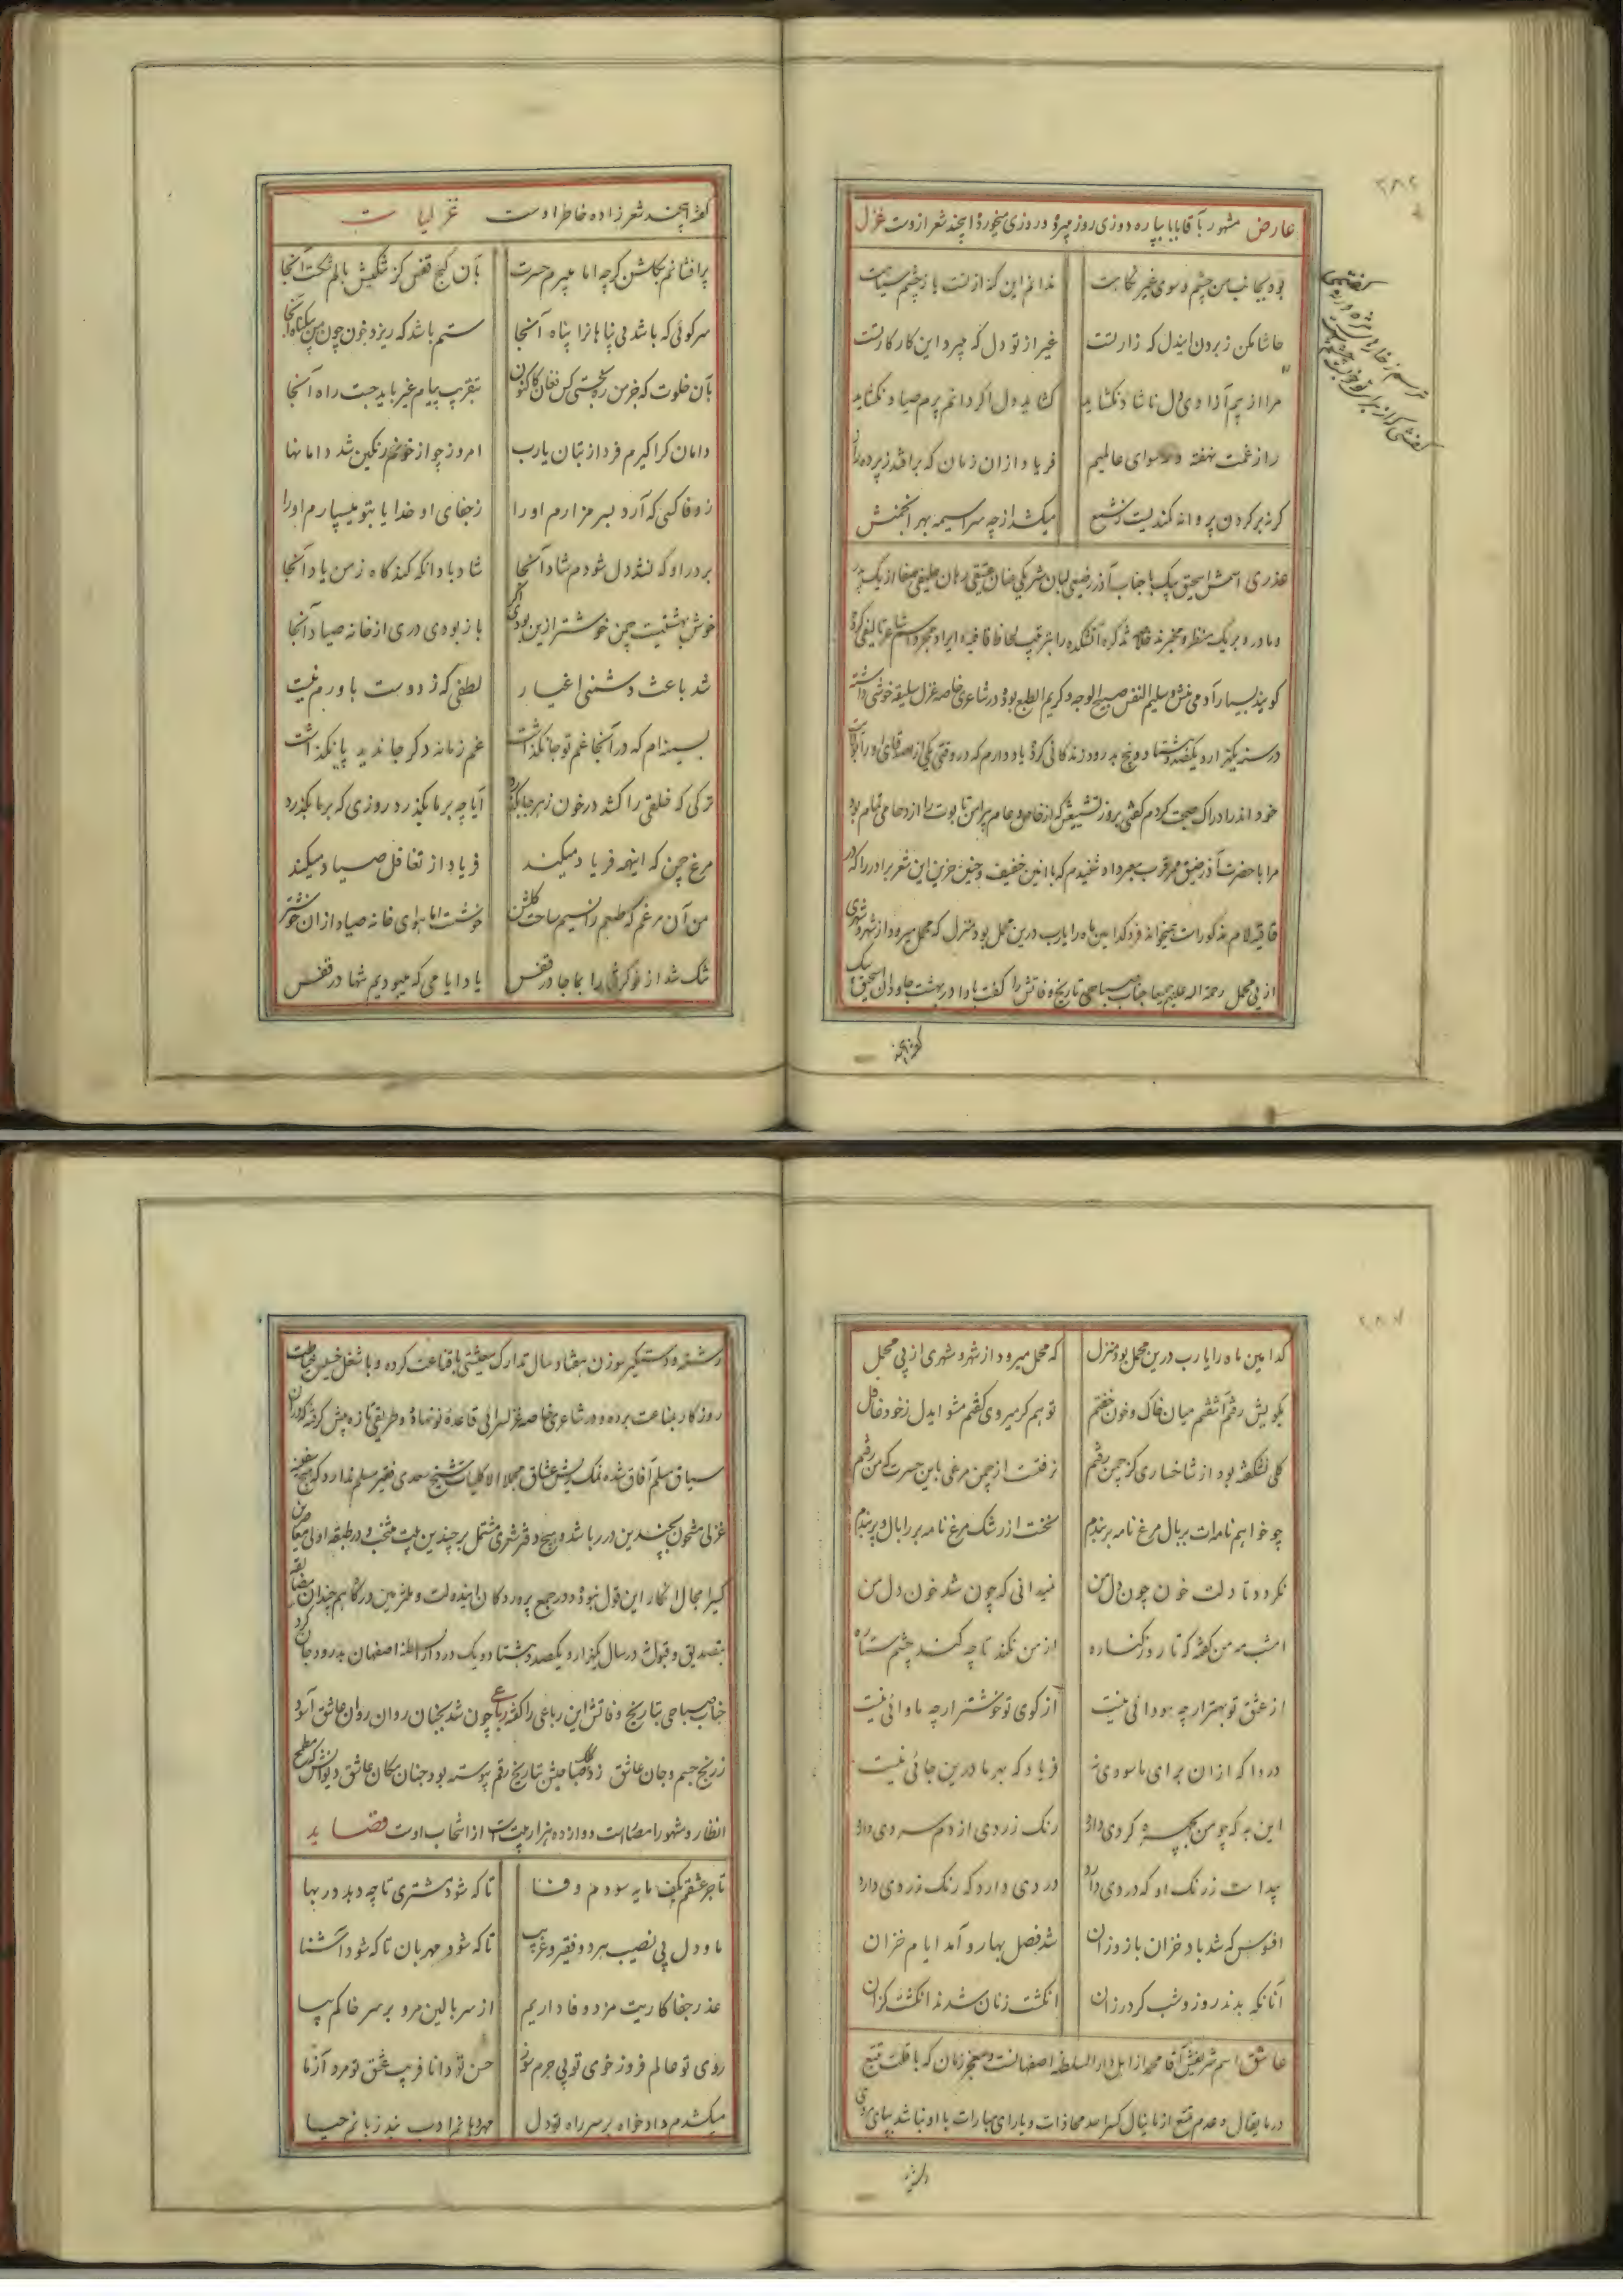 عارض مشهور بآقابابا بپاره دوزی روز میبرده و روزی میخورده این چند شعر ازوست غزل
بود یکجا غیب من چشم و سوی غیر نگاهت
ندانم این گنه از تست یا ز چشم سیاهت
حاشا مکن ز بردن ایندل که زار تست
غیر از تو دل که میبرد این کار کار تست
مرا از بیم آزادی دل ناشاد نگشاید
گشاید دل اگر دانم پرم صیاد نگشاید
راز غمت نهفته و رسوای عالمیم
فریاد ازان زمان که برافتد ز پرده راز
گرنه بر گردن پروانه کمندیست ز شمع
میکشد از چه سراسیمه بهر انجمنش
عذری اسمش اسحق بیک با جناب آذر رضیعی لبان شریکی عنان حقیقی رهان حلیفی صفا از یک پدر
و مادر و بر یک منظر و مخبرند
گویند بسیار آدمی منش و سلیم النفس صبیح الوجه و کریم الطبع بوده در شاعری خاصه غزل سلیقه خوشی داشته
در سنه یکهزار و یکصد و هشتاد و پنج بدرود زندگانی کرده یاد دارم که در وقتی یکی از اصدقای او را
خود اندر ادراک صحبت کردم گفتی بروز تشییعش که از خاص و عام پیرامن تابوت را ازدحامی تمام بود
مرا با حضرت آذر ضیق مرقوب میرداد شنیدم که با انین خفیف و حنین حزین این شعر برادر را که در
قافیه لام مذکور است میخواند فرد کدامین ماه را یارب درین محمل بود منزل که محمل میرود از شهر و شهری
از پی محمل رحمة اله علیهم جمیعا جناب صباحی تاریخ وفاتش را گفت بادا در بهشت جاودان اسحق بیک
گوهر این چند
گوهر این چند شعر زاده خاطر اوست غزلیات
پرافشانم بگلشن گرچه اما میبرم حسرت
بآن کنج قفس کز تنگیش بالم شکست آنجا
سر کوئی که باشد بی پناهانرا پناه آنجا
ستم باشد که ریزد خون چون من بیگناه آنجا
بآن خلوت که جز من ره نجستی کس فغان کاکنون
بتقریب پیام غیر باید جست راه آنجا
دامان کرا گیرم فردا ز بتان یارب
امروز چو از خونم رنگین شد دامانها
ز وفا کسی که آرد بسر مزارم او را
ز جفای او خدایا بتو میسپارم او را
بر در او که نشد دل شودم شاد آنجا
شاد باد آنکه کند گاه ز من یاد آنجا
خوش بهشتیست چمن خوشتر ازین بودی اگر
باز بودی دری از خانه صیاد آنجا
شد باعث دشمنی اغیار
لطفی که ز دوست باورم نیست
بسینه‌ام که در آنجا غم تو جا نگذاشت
غم زمانه دگر جا ندید پا نگذاشت
ترکی که خلقی را کشد در خون ز هرجا بگذرد
آیا چه بر ما بگذرد روزی که بر ما بگذرد
مرغ چمن که اینهمه فریاد میکند
فریاد از تغافل صیاد میکند
من آن مرغم که طبعم را نسیم ساحت گلشن
خوشست اما هوای خانه صیاد از آن خوشتر
تنگ شد از دگران را بما جا در قفس
یاد ایامی که میبودیم تنها در قفس
کدامین ماه را یارب درین محمل بود منزل
که محمل میرود از شهر و شهری از پی محمل
بکویش رفتم آشفتم میان خاک و خون خفتم
تو هم گر میروی گفتم مشو ایدل ز خود غافل
گلی نشکفته بود از شاخساری کز چمن رفتم
نرفتست از چمن مرغی باین حسرت که من رفتم
چو خواهم نامه‌ات بر بال مرغ نامه‌بر بندم
نخست از رشک مرغ نامه‌بر را بال و پر بندم
نگردد تا دلت خون چون دل من
نمیدانی که چون شد خون دل من
امشب مه من گفته که تا روز کناره
از من نکند تا چه کند چشم ستاره
از عشق تو بهتر ار چه سودائی نیست
از کوی تو خوشتر ار چه ماوائی نیست
دردا که ازان برای ما سودی نه
فریاد که بهر ما درین جائی نیست
این به که چو من بچهره گردی دارد
رنگ زردی از دم سردی دارد
پیداست ز رنگ او که دردی دارد
دردی دارد که رنگ زردی دارد
افسوس که شد باد خزان باز وزان
شد فصل بهار و آمد ایام خزان
آنانکه بدند روز و شب گرد رزان
انگشت زنان شدند انگشت گزان
عاشق اسم شریفش آقا محمد از اهل دار السلطنه اصفهانست و معجز زمان که با قلت تتبع
در مایقال و عدم تتبع از ماینال کسرا حد محاذات و یارای مبارات با او نباشد بپای مردی
رشته
رشته و دستگیر سوزن هفتاد سال تدارک معیشتی باقناعت کرده و با شغل خسیس خیاطت
روزگار بمناعت برده و در شاعری خاصه غزلسرائی قاعده نو نهاده و طریقی تازه پیش گرفته که دران
سیاق مسلم آفاق شده نمک ریش عشاق مجلا الا کلیات شیخ سعدی فقیر مسلم ندارد که هیچ سفینه
غزلی مشحون بچندین درر باشد و هیچ دفتر شعری مشتمل بر چندین بیت منتخب و در طبقه اولی معاصرین
کسیرا مجال انکار این قول نبوده و در جمیع پروردگان ایندولت و ملتزمین درگاه هم چندان مضایقه
بتصدیق و قبولش در سال یکهزار و یکصد و هشتاد و یک در دار السلطنه اصفهان بدرود جهان کرد
جناب صباحی بتاریخ وفاتش این رباعی را گفته رباعی چون شد بجنان روان روان عاشق آسود
ز رنج جسم و جان عاشق زد کلک صباحیش بتاریخ رقم پیوسته بود جنان مکان عاشق دیوانش که مطمح
انظار و مشهور امصار است دوازده هزار بیت است از انتخاب اوست قصاید
تاجر عشقم بکف مایه سودم وفا
تا که شود مشتری تا چه دهد در بها
ما و دل بی نصیب هر دو فقیر و غریب
تا که شود مهربان تا که شود آشنا
عذر جفا کاریت مزد وفاداریم
از سر بالین مرو بر سر خاکم بیا
روی تو عالم فروز خوی تو بی جرم سوز
حسن تو دانا فریب عشق تو مرد آزما
میکشدم دادخواه بر سر راه تو دل